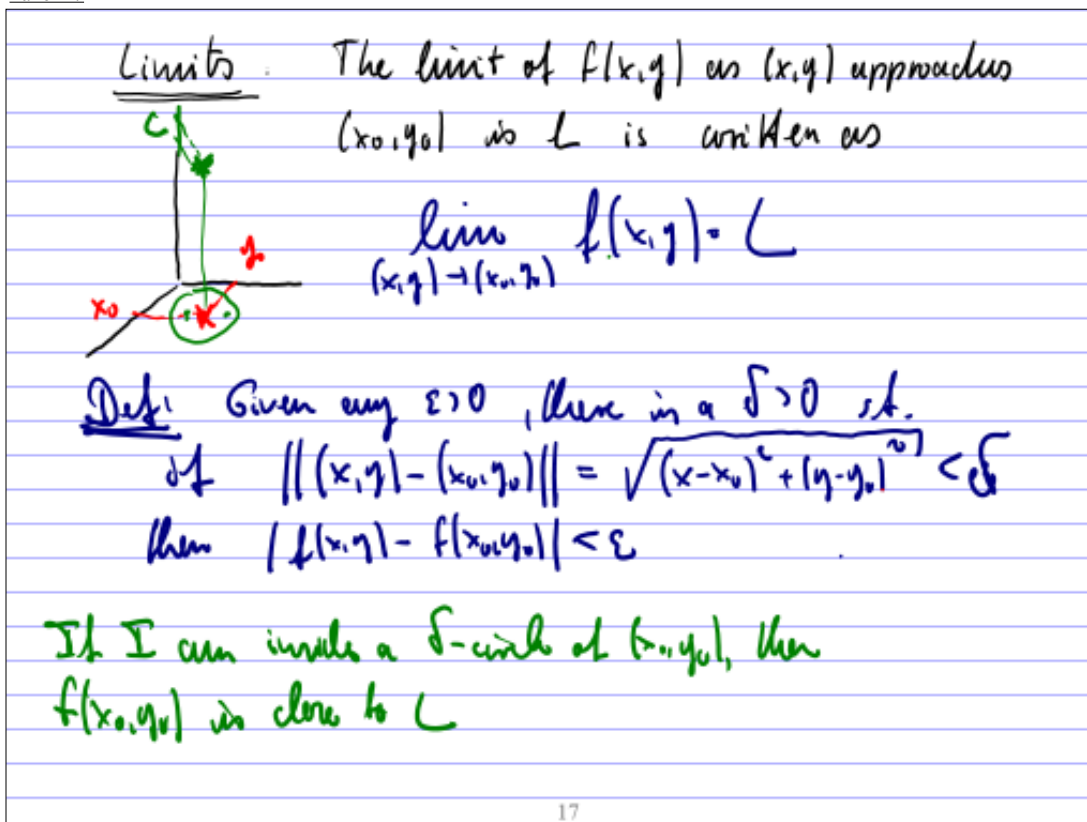 Limits. The limit of f(x,y) as (x,y) approaches
(x₀,y₀) is L is written as
L
lim f(x,y) = L
(x,y)→(x₀,y₀)
y₀
x₀
Def: Given any ε>0, there is a δ>0 st.
if ||(x,y)-(x₀,y₀)|| = √((x-x₀)²+(y-y₀)²) < δ
then |f(x,y) - f(x₀,y₀)| < ε
If I am inside a δ-circle of (x₀,y₀), then
f(x₀,y₀) is close to L
17